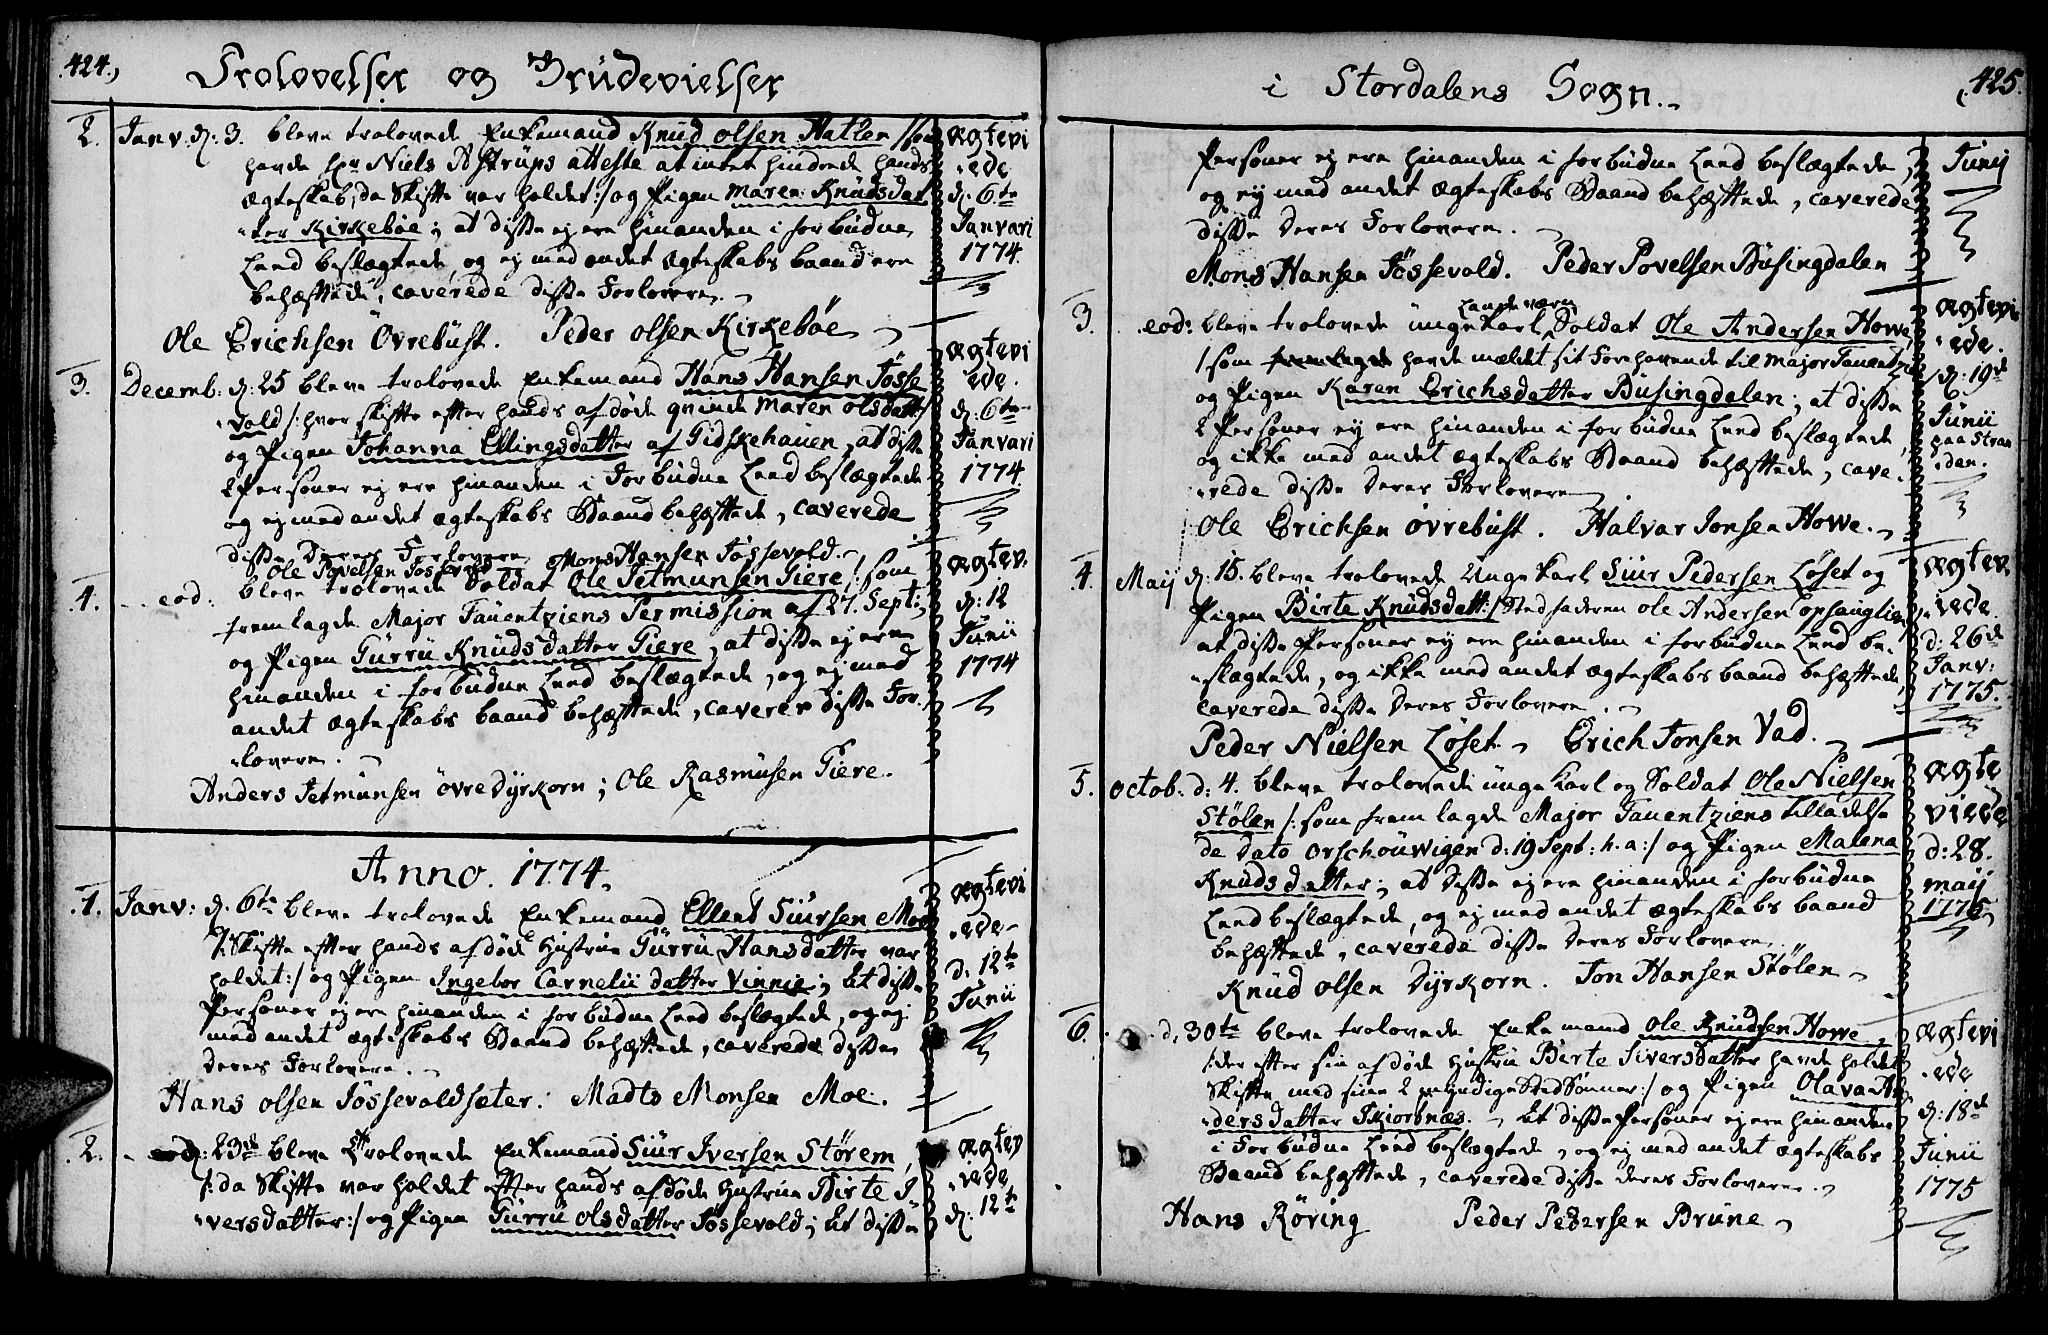 424.)
Trolovelser og Brudevielser
2. Janv. d: 3. bleve trolovede Enkemand Knud olsen Hatlen /:som
havde hr. Niels Astrups atteste at intet hindrede hands
ægteskab, da Skifte var holdet:/ og Pigen Maren Knudsdat
ter Kirkebøe; at disse ej ere hinanden i forbudne
Leed beslægtede, og ej med andet ægteskabs baand ere
behæftede, caverede disse Forlovere.
Ole Erichsen Øvrebust. Peder olsen Kirkebøe
ægtevi
ede
d: 6te
Janvari
1774.
3. Decemb. d: 25 bleve trolovede Enkemand Hans Hansen Jøsse
vold /: hvor skifte efter hands afdøde qvinde Maren olsdatt:/
og Pigen Johanna Ellingsdatter af Gidskehauen, at disse
2 Personer ej ere hinanden i Forbudne Leed beslægtede
og ej med andet ægteskabs Baand behæftede, caverede
disse Deres Forlovere Mons Hansen Jøssevold.
Ole Povelsen Jossevold
ægtevi
ede.
d: 6te
Janvari
1774.
4. eod: bleve trolovede Soldat Ole Jetmunsen Giere /: som
fremlagde Major Tauentziens Permission af 27. Sept:/
og Pigen Gurru Knudsdatter Giere, at disse ej ere
hinanden i forbudne Leed beslægtede, og ej med
andet ægteskabs baand behæftede, caverer disse For-
lovere.
Anders Jetmunsen øvre Dyrkorn; Ole Rasmusen Giere.
ægtev.
d: 12
Junii
1774
Anno. 1774.
1. Janv: d. 6te bleve trolovede Enkemand Ellent Siursen Moe
/: Skifte efter hands afdøde Hustrue Gurru Hansdatter var
holdet:/ og Pigen Ingebor Carnelii datter Vinnie; Et disse
Personer ej ere hinanden i forbudne Leed beslægtede, og ej
med andet ægteskabs Baand behæftede, caverede disse
Deres Forlovere.
Hans olsen Jøssevoldsæter. Madts Monsen Moe.
ægtevi
ede
d: 12te
Junii
2. d: 23de bleve trolovede Enkemand Siur Iversen Størem,
/: da Skifte var holdet efter hands afdøde Hustrue Birte I-
versdatter:/ og Pigen Gurru olsdatter Jøssevold; Et disse
ægtev
iede
d: 12te
i Stordalens Sogn.
425.
Personer ej ere hinanden i forbudne Leed beslægtede,
og ej med andet Ægteskabs Baand behæftede, caverede
disse Deres Forlovere.
Mons Hansen Jøssevold. Peder Povelsen Busingdalen
Junij
3. eod: bleve trolovede ungekarl Landeværn Soldat Ole Andersen Howe,
/:som havde mældet sit Forehavende til Major Tauentz
og Pigen Karen Erichsdatter Busingdalen; at disse
2 Personer ej ere hinanden i forbudne Leed beslægtede,
og ikke med andet ægteskabs Baand behæftede, cave-
rede disse Deres Forlovere
Ole Erichsen øvrebust. Halvar Jonsen Howe.
ægtevi
ede.
d: 19de
Junii
paa Stran
den.
4. Maij d: 15. bleve trolovede Ungekarl Siur Pedersen Løset og
Pigen Birte Knudsdatt:/ Stedfaderen ole Andersen
at disse Personer ej ere hinanden i forbudne Leed be-
slægtede, og ikke med andet ægteskabs baand behæftede,
caverede disse Deres Forlovere.
Peder Nielsen Løset. Erich Jonsen Vad.
ægtev
iede
d: 26de
Janv:
1775.
5. Octob. d: 4. bleve trolovede ungekarl og Soldat Ole Nielsen
Stølen /: som fremlagde Major Tauentziens tilladelse
de Dato Orschouwigen d: 19 Sept: h. a:/ og Pigen Malena
Knudsdatter; at disse ej ere hinanden i forbudne
Leed beslægtede, og ej med andet ægteskabs baand
behæftede, caverede disse Deres Forlovere.
Knud olsen Dyrkorn. Jon Hansen Stølen
ægte
viede
d: 28.
Maij
1775
6. d: 30te bleve trolovede Enkemand Ole Knudsen Howe,
/:der efter sin afdøde Hustru Berte Siversdatter havde holdet
Skifte med sine 2 myndige Stedsønner:/ og Pigen Olava An
dersdatter Skiorsnæs. Et disse Personer ej ere hinanden
i Forbudne Leed beslægtede, og ej med andet ægteskabs
Baand behæftede, caverede disse Deres Forlovere.
Hans Røring Peder Pedersen Brune
ægtevi
ede
d: 18de
Junii
1775